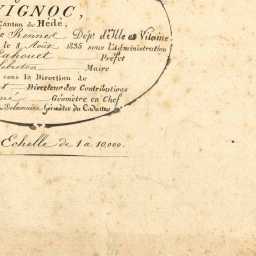 VIGNOC,
Canton de Hédé,
Rennes Dépt d'Ille et Vilaine
le 8 Août 1835 sous l'Administration
Préfet
Maire
sous la Direction de
Directeur des Contributions
Géomètre en Chef
Géomètre du Cadastre
Echelle de 1 à 10,000.